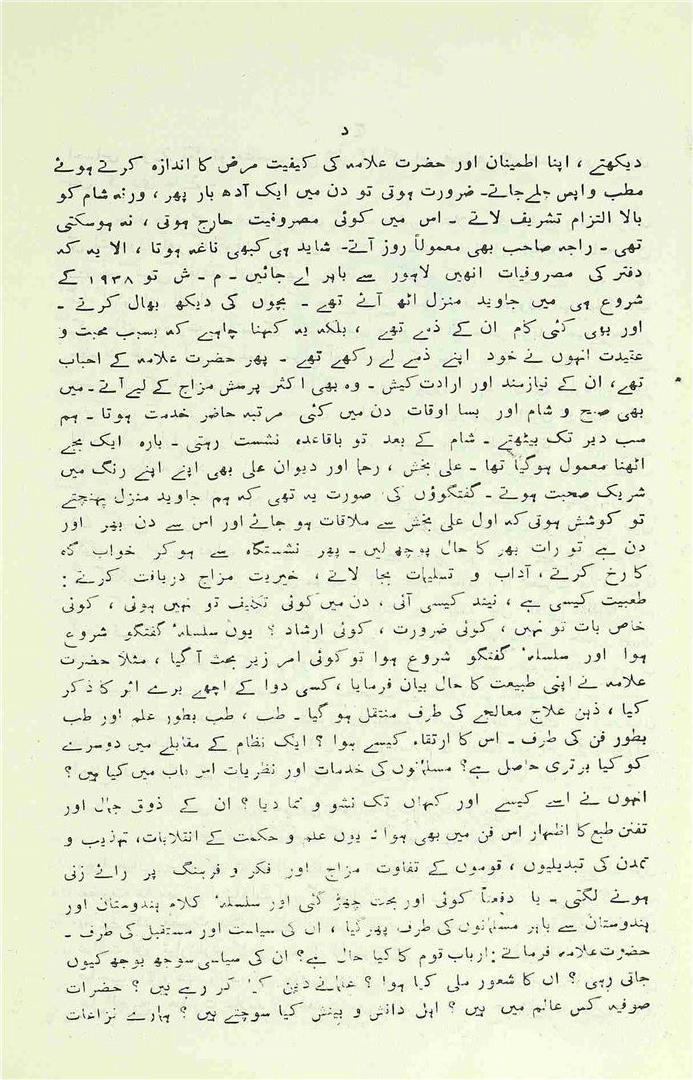 د
دیکھتے ، اپنا اطمینان اور حضرت علامہ کی کیفیت مرض کا اندازہ کرتے ہوئے
مطب واپس چلے جاتے۔ ضرورت ہوتی تو دن میں ایک آدھ بار پھر ، ورنہ شام کو
بالا التزام تشریف لاتے ۔ اس میں کوئی مصروفیت حارج ہوتی ، نہ ہوسکتی
تھی ۔ راجہ صاحب بھی معمولاً روز آتے۔ شاید ہی کبھی ناغہ ہوتا ، الا یہ کہ
دفتر کی مصروفیات انھیں لاہور سے باہر لے جائیں ۔ م ۔ ش تو ۱۹۳۸ کے
شروع ہی میں جاوید منزل اٹھ آئے تھے ۔ بچوں کی دیکھ بھال کرتے ۔
اور بھی کئی کام ان کے ذمے تھے ، بلکہ یہ کہنا چاہیے کہ بسبب محبت و
عقیدت انہوں نے خود اپنے ذمے لے رکھے تھے ۔ پھر حضرت علامہ کے احباب
تھے، ان کے نیازمند اور ارادت کیش ۔ وہ بھی اکثر پرسش مزاج کے لیے آتے ۔ میں
بھی صبح و شام اور بسا اوقات دن میں کئی مرتبہ حاضر خدمت ہوتا ۔ ہم
سب دیر تک بیٹھتے ۔ شام کے بعد تو باقاعدہ نشست رہتی ۔ بارہ ایک بجے
اٹھنا معمول ہوگیا تھا ۔ علی بخش ، رحما اور دیوان علی بھی اپنے اپنے رنگ میں
شریک صحبت ہوتے ۔ گفتگوؤں کی صورت یہ تھی کہ ہم جاوید منزل پہنچتے
تو کوشش ہوتی کہ اول علی بخش سے ملاقات ہو جائے اور اس سے دن بھر اور
دن ہے تو رات بھر کا حال پوچھ لیں ۔ پھر نشستگاہ سے ہو کر خواب گاہ
کا رخ کرتے ، آداب و تسلیمات بجا لاتے ، خیریت مزاج دریافت کرتے :
طبعیت کیسی ہے ، نیند کیسی آئی ، دن میں کوئی تکلیف تو نہیں ہوئی ، کوئی
خاص بات تو نہیں ، کوئی ضرورت ، کوئی ارشاد ؟ یوں سلسلۂ گفتگو شروع
ہوا اور سلسلۂ گفتگو شروع ہوا تو کوئی امر زیر بحث آ گیا ، مثلاً حضرت
علامہ نے اپنی طبیعت کا حال بیان فرمایا ، کسی دوا کے اچھے برے اثر کا ذکر
کیا ، ذہن علاج معالجے کی طرف منتقل ہو گیا ۔ طب ، طب بطور علم اور طب
بطور فن کی طرف ۔ اس کا ارتقاء کیسے ہوا ؟ ایک نظام کے مقابلے میں دوسرے
کو کیا برتری حاصل ہے ؟ مسلمانوں کی خدمات اور نظریات اس باب میں کیا ہیں ؟
انہوں نے اسے کیسے اور کہاں تک نشو و نما دیا ؟ ان کے ذوق جمال اور
تفنن طبع کا اظہار اس فن میں بھی ہوا ۔ یوں علم و حکمت کے انقلابات، تہذیب و
تمدن کی تبدیلیوں ، قوموں کے تفاوت مزاج اور فکر و فرہنگ پر رائے زنی
ہونے لگتی ۔ یا دفعتاً کوئی اور بحث چھڑ گئی اور سلسلۂ کلام ہندوستان اور
ہندوستان سے باہر مسلمانوں کی طرف پھر گیا ، ان کی سیاست اور مستقبل کی طرف ۔
حضرت علامہ فرماتے : ارباب قوم کا کیا حال ہے ؟ ان کی سیاسی سوجھ بوجھ کیوں
جاتی رہی ؟ ان کا شعور ملی کیا ہوا ؟ علمائے دین کیا کر رہے ہیں ؟ حضرات
صوفیہ کس عالم میں ہیں ؟ اہل دانش و بینش کیا سوچتے ہیں ؟ ہمارے نزاعات